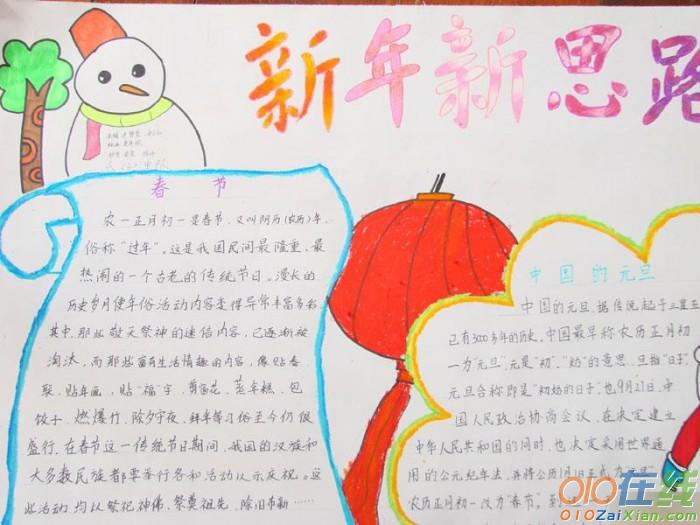 新年新思路
春节
农一正月初一是春节,又叫阴历(农历)年,
俗称“过年”。这是我国民间最隆重、最
热闹的一个古老的传统节日。漫长的
历史岁月使年俗活动内容变得异常丰富多彩.
其中,那些敬天祭神的迷信内容,已逐渐被
淘汰,而那些富有生活情趣的内容,像贴春
联、贴年画,贴“福”字、剪窗花、蒸年糕、包
饺子、燃爆竹、除夕守夜、拜年等习俗至今仍很
盛行.在春节这一传统节日期间,我国的汉族和
大多数民族都要举行各和活动以示庆祝。这
些活动均以祭祀神佛、祭奠祖先、除旧布新……
中国的元旦
中国的元旦,据传说起于三皇五
已有3000多年的历史。中国最早称农历正月初
一为“元旦”,元是“初”、“始”的意思,旦指“日子”,
元旦合称即是“初始的日子”.也9月27日,中
国人民政治协商会议,在决定建立
中华人民共和国的同时,也决定采用世界通
用的公元纪年法,并将公历1月1日正式
农历正月初一改为“春节”,
010在线
010ZaiXian.com